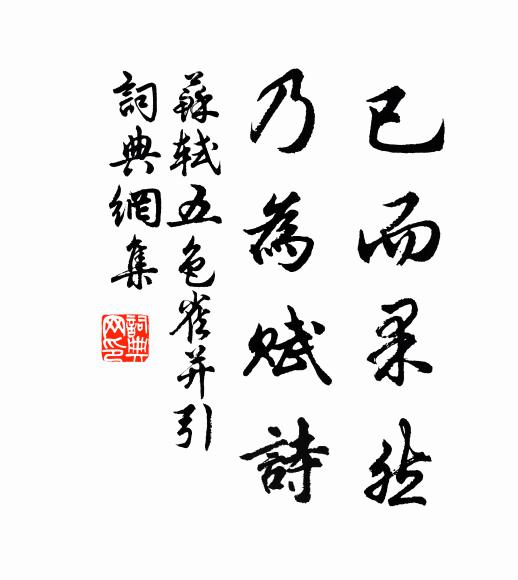 已而果然
乃為賦詩
蘇軾五色雀并引
詞典網集
詞典網印